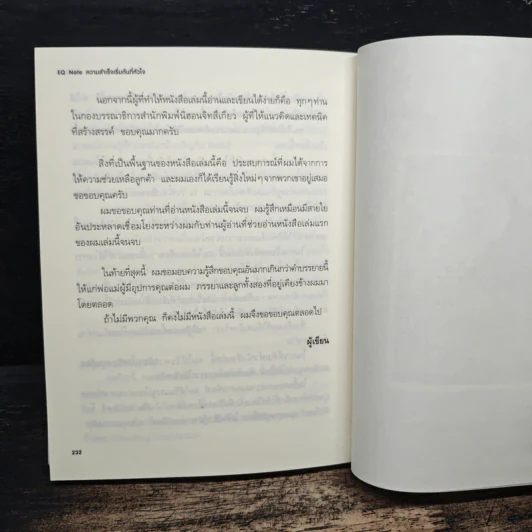 EQ Note ความสำเร็จเริ่มต้นที่หัวใจ
นอกจากนี้ผู้ที่ทำให้หนังสือเล่มนี้อ่านและเขียนได้ง่ายก็คือ ทุกๆ ท่าน
ในกองบรรณาธิการสำนักพิมพ์นิฮอนจิทสึเกียว ผู้ที่ให้แนวคิดและเทคนิค
ที่สร้างสรรค์ ขอบคุณมากครับ
สิ่งที่เป็นพื้นฐานของหนังสือเล่มนี้คือ ประสบการณ์ที่ผมได้จากการ
ให้ความช่วยเหลือลูกค้า และผมเองก็ได้เรียนรู้สิ่งใหม่ๆ จากพวกเขาอยู่เสมอ
ขอขอบคุณครับ
ผมขอขอบคุณท่านที่อ่านหนังสือเล่มนี้จนจบ ผมรู้สึกเหมือนมีสายใย
อันประหลาดเชื่อมโยงระหว่างผมกับท่านผู้อ่านที่ช่วยอ่านหนังสือเล่มแรก
ของผมเล่มนี้จนจบ
ในท้ายที่สุดนี้ ผมขอมอบความรู้สึกขอบคุณอันมากเกินกว่าคำบรรยายนี้
ให้แก่พ่อแม่ผู้มีอุปการคุณต่อผม ภรรยาและลูกทั้งสองที่อยู่เคียงข้างผมมา
โดยตลอด
ถ้าไม่มีพวกคุณ ก็คงไม่มีหนังสือเล่มนี้ ผมจึงขอขอบคุณตลอดไป
ผู้เขียน
232